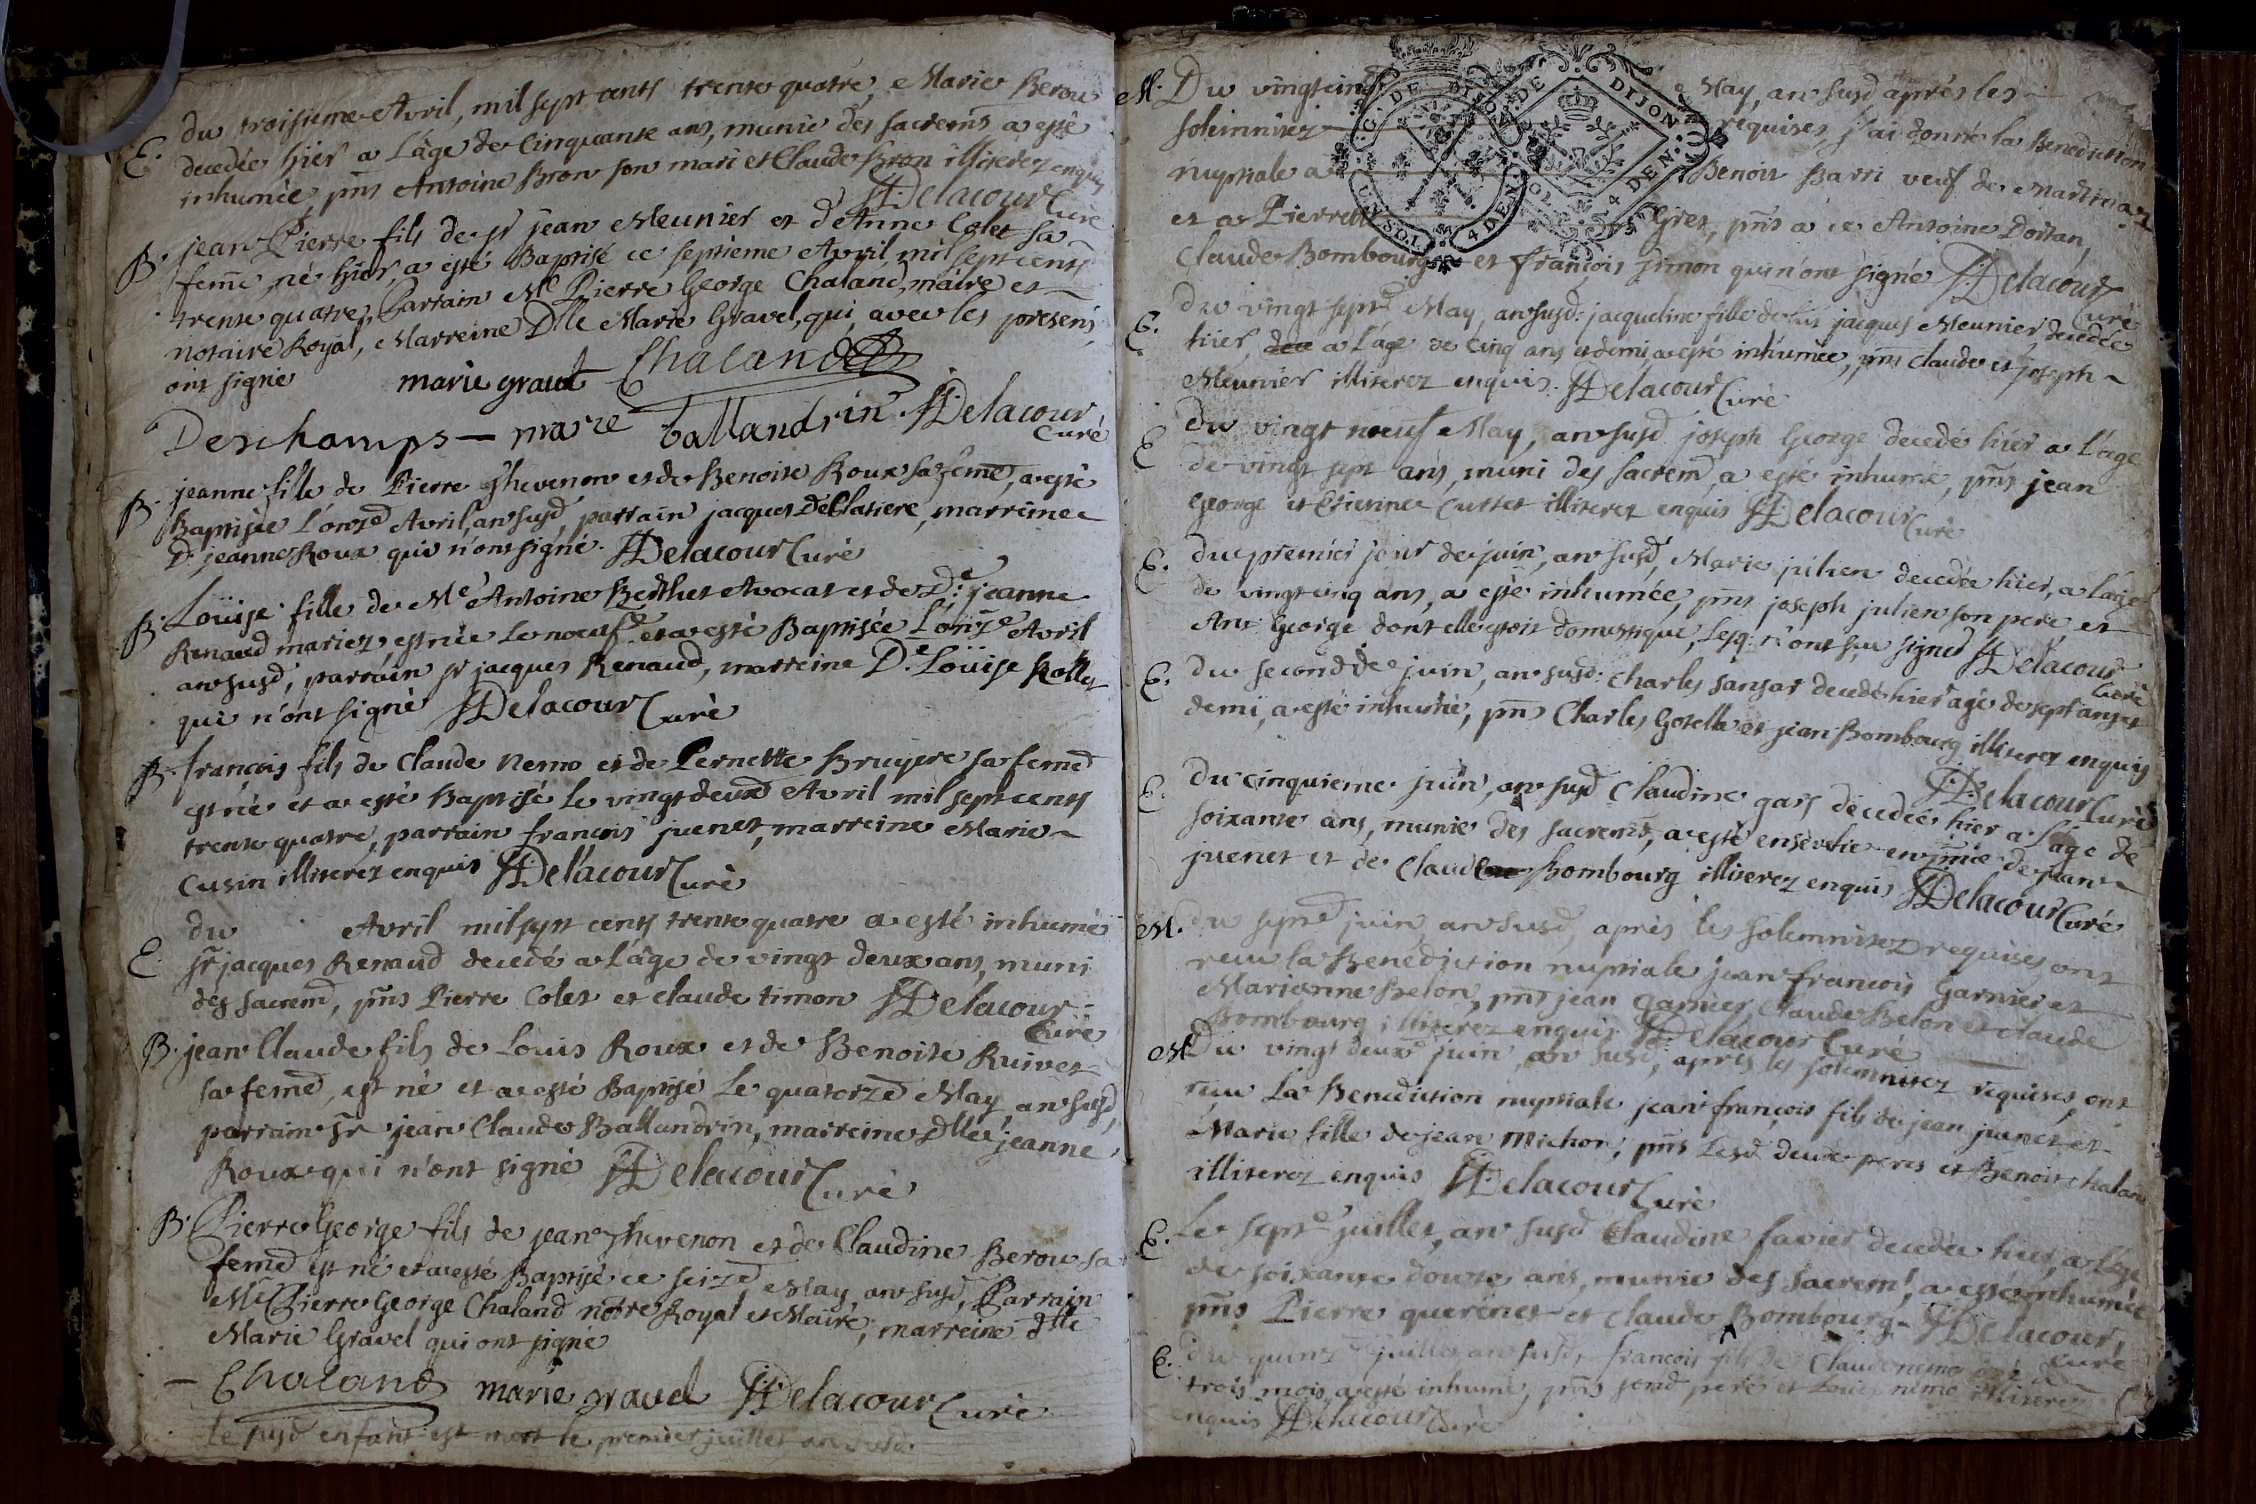 du troisieme Avril, mil sept cents trente quatre, Marie Berou
E. decedée hier a L'âge de Cinquante ans, munie des sacrem̃s a esté
inhumée, pñs Antoine Bron son mari et Claude Bron illiterez enquis
JJDelacour Curé
B. jean Pierre fils de Sr jean Meunier et d'Anne Colet sa
fem̃e, né hier, a esté Baptisé ce septieme Avril mil sept cents
trente quatre, Parrain Me Pierre George Chaland, maire et
notaire Royal, Marreine Dlle Marie Gravel, qui avec les presens
ont signé marie gravel Chaland
Deschamps — marie ballandrin JJDelacour
Curé
B. jeanne fille de Pierre Thevenon et de Benoite Roux sa fem̃e, a esté
Baptisée L'onze Avril, an susd, parrain jacques DeClatiere, marreine
De jeanne Roux qui n'ont signé. JJDelacour Curé
B. Loüise fille de Me Antoine Berthet Avocat et de De jeanne
Renaud mariez, est née le neuf et a esté Baptisée L'onze Avril
an susd, parrain Sr jacques Renaud, marreine De Loüise Rollet
qui n'ont signé JJDelacour Curé
B. françois fils de Claude Nemo et de Pernette Bruyere sa femme
est né et a esté Baptisé le vingt deux Avril mil sept cents
trente quatre, parrain françois juenet, marreine Marie
Cusin illiterez enquis JJDelacour Curé
du Avril mil sept cents trente quatre a esté inhumé
E. Sr jacques Renaud decedé a L'âge de vingt deux ans, muni
des sacrem, pñs Pierre Colet et Claude timon JJDelacour
Curé
B. jean Claude fils de Louis Roux et de Benoite Ruivet
sa feme, est né et a esté Baptisé Le quatorze May an susd,
parrain Sr jean Claude Ballandrin, marreine Dlle jeanne
Roux qui n'ont signé JJDelacour Curé
B. Pierre George fils de jean Thevenon et de Claudine Berou sa
feme est né et a esté Baptisé ce seize May, an susd, Parrain
Me Pierre George Chaland notre Royal et Maire, marreine Dlle
Marie Gravel qui ont signé
Chaland marie gravel JJDelacour Curé
le susd enfant est mort le premier juillet an susd
M. Du vingt cinq May, an susd après les
solemnitez requises, j'ai donné la Benediction
nuptiale a Benoit Barri veuf de
et a Pierrette Gret, pñs a ce Antoine Dortan,
Claude Bombourg et françois simon qui n'ont signé JJDelacour
Curé
E. du vingt sept May, an susd: jacqueline fille de jacques Meunier, decedée
hier, a L'age de Cinq ans et demi a esté inhumée, pñs Claude et joseph
Meunier illiterez enquis. JJDelacour Curé
E du vingt neuf May, an susd joseph George decedé hier a L'age
de vingt sept ans, muni des sacrem, a esté inhumé, pñs jean
George et Etienne Curtet illiterez enquis JJDelacour Curé
E. du premier jour de juin, an susd, Marie julien decedée hier, a L'age
de vingt cinq ans, a esté inhumée, pñs joseph julien son pere, et
Ant George dont elle estoit domestique, Lesq: n'ont sçu signer JJDelacour
Curé
E. du second de juin, an susd: Charles sansar decedé hier agé de sept ans et
demi, a esté inhumé, pñs Charles Gotelle et jean Bombourg illiterez enquis
JJDelacour Curé
E. du cinquieme juin, an susd Claudine decedée hier a L'age de
soixante ans, munie des sacrem̃s, a esté ensevelie en pñce de jean
juenet et de Claude Bombourg illiterez enquis JJDelacour Curé
M. du sept juin an susd, après les solemnitez requises ont
reçu la Benediction nuptiale jean françois Garnier et
Marianne Belon, pñs jean Garnier, Claude Belon et Claude
Bombourg illiterez enquis JJDelacour Curé
M. Du vingt deux juin, an susd, après les solemnitez requises, ont
reçu La Benediction nuptiale jean françois fils de jean juenet et
Marie fille de jean Michon, pñs Lesd deux peres et Benoit Chaland
illiterez enquis JJDelacour Curé
E. Le sept juillet, an susd Claudine favier decedée hier, a L'age
de soixante douze ans, munie des sacrem, a esté inhumée
pñs Pierre querenet et Claude Bombourg JJDelacour
Curé
E. du quinze juillet an susd, françois fils de Claude nemo agé de
trois mois, a esté inhumé, pñs sond pere et Louis nemo illiterez
enquis JJDelacour Curé
G. DE DIJON
UN SOL
4 DEN